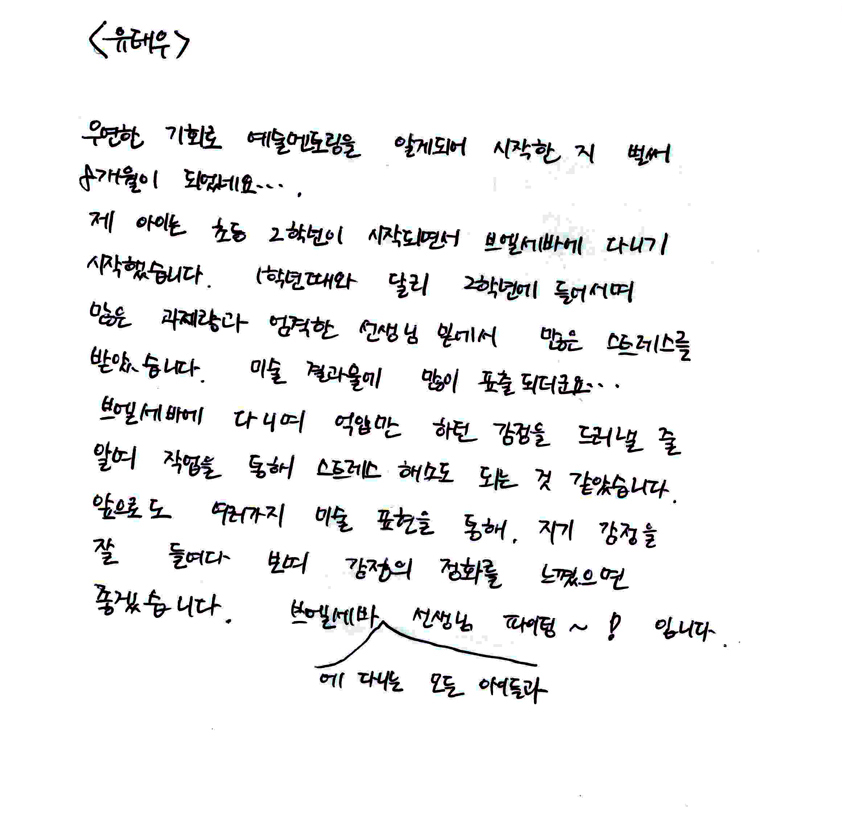 <유태우>
우연한 기회로 예술멘토링을 알게되어 시작한 지 벌써
8개월이 되었네요....
제 아이는 초등 2학년이 시작되면서 브엘세바에 다니기
시작했습니다. 1학년때와 달리 2학년에 들어서며
많은 과제량과 엄격한 선생님 밑에서 많은 스트레스를
받았습니다. 미술 결과물에 많이 표출되더군요...
브엘세바에 다니며 억압만 하던 감정을 드러낼 줄
알며 작업을 통해 스트레스 해소도 되는 것 같았습니다.
앞으로도 여러가지 미술 표현을 통해, 자기 감정을
잘 들여다 보며 감정의 정화를 느꼈으면
좋겠습니다. 브엘세바 선생님 파이팅~! 입니다.
에 다니는 모든 아이들과